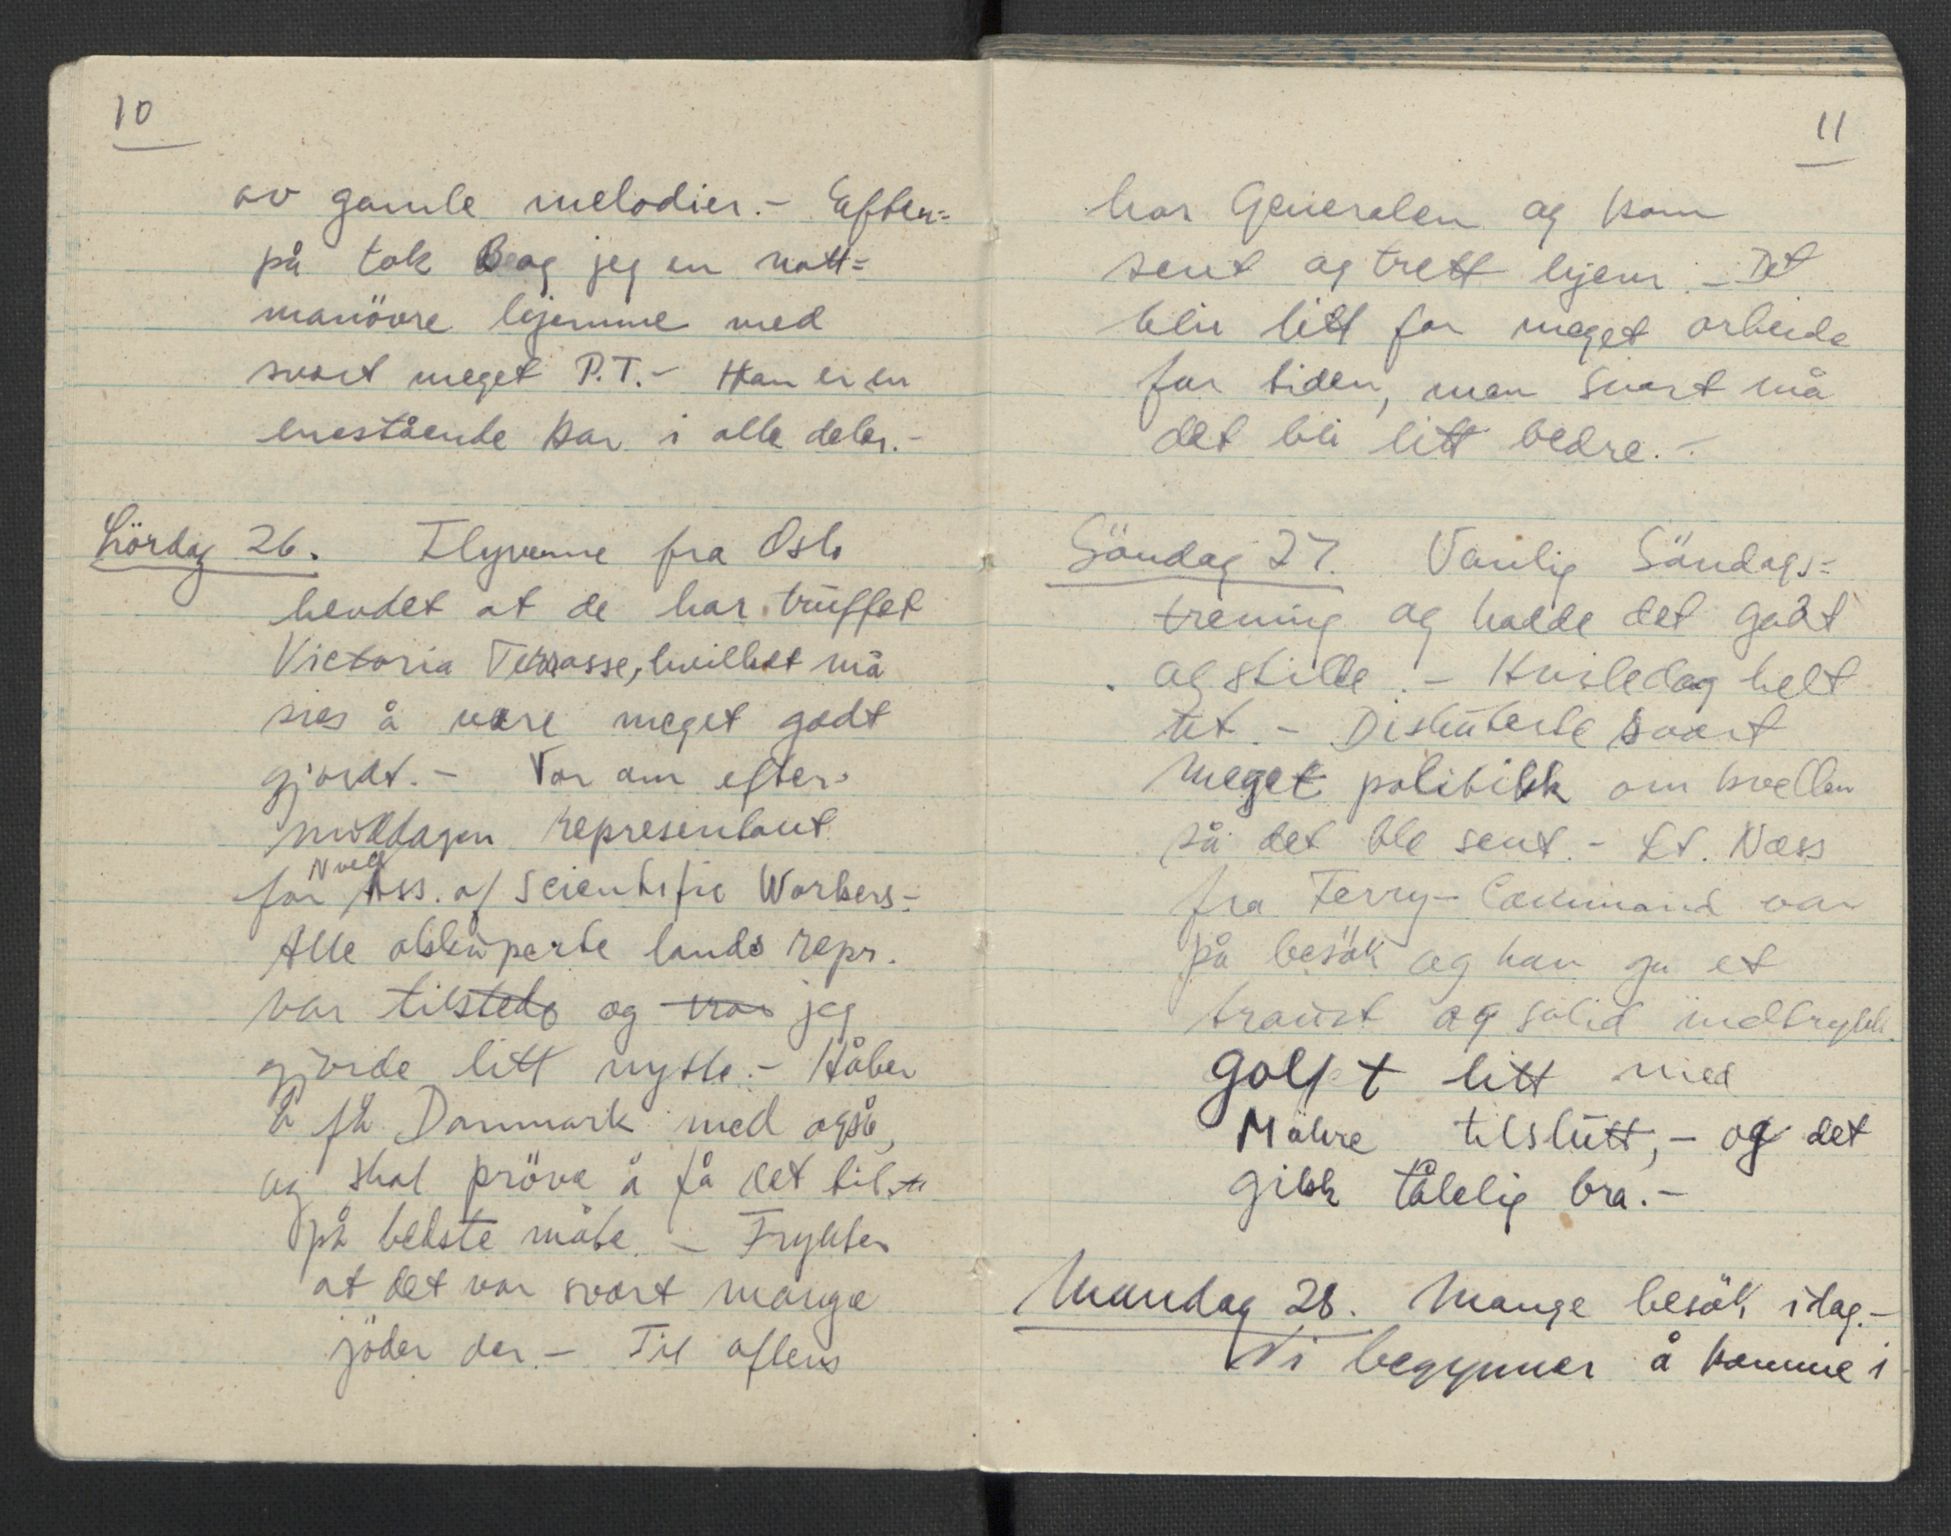 10
av gamle melodier.- Efter=
på tok B og jeg en natt=
manövre hjemme med
svært meget P.T.- Han er en
enestående kar i alle deler.-
Lördag 26. Flyverne fra Oslo
hevdet at de har truffet
Victoria Terrasse, hvilket må
sies å være meget godt
gjordt.- Var om efter=
middagen representant
for Nveg Ass. of Scientific Workers-
Alle okkuperte lands repr.
var tilstede og var jeg
gjorde litt nytte.- Håber
å få Danmark med også,
og skal pröve å få det til
på bedste måte. - Frykter
at det var svært mange
jöder der.- Til aftens
11
hos Generalen og kom
sent og trett hjem.- Det
blir litt for meget arbeide
for tiden, men snart må
det bli litt bedre.-
Söndag 27. Vanlig Söndags=
trening og hadde det godt
og stille.- Hviledag helt
ut.- Diskuterte svært
meget politikk om kvellen
så det ble sent.- Lt. Næss
fra Ferry-Command var
på besök og han ga et
traust og solid indtrykk.
golft litt med
Möhre tilslutt,- og det
gikk tålelig bra.-
Mandag 28. Mange besök idag.-
Vi begynner å komme i